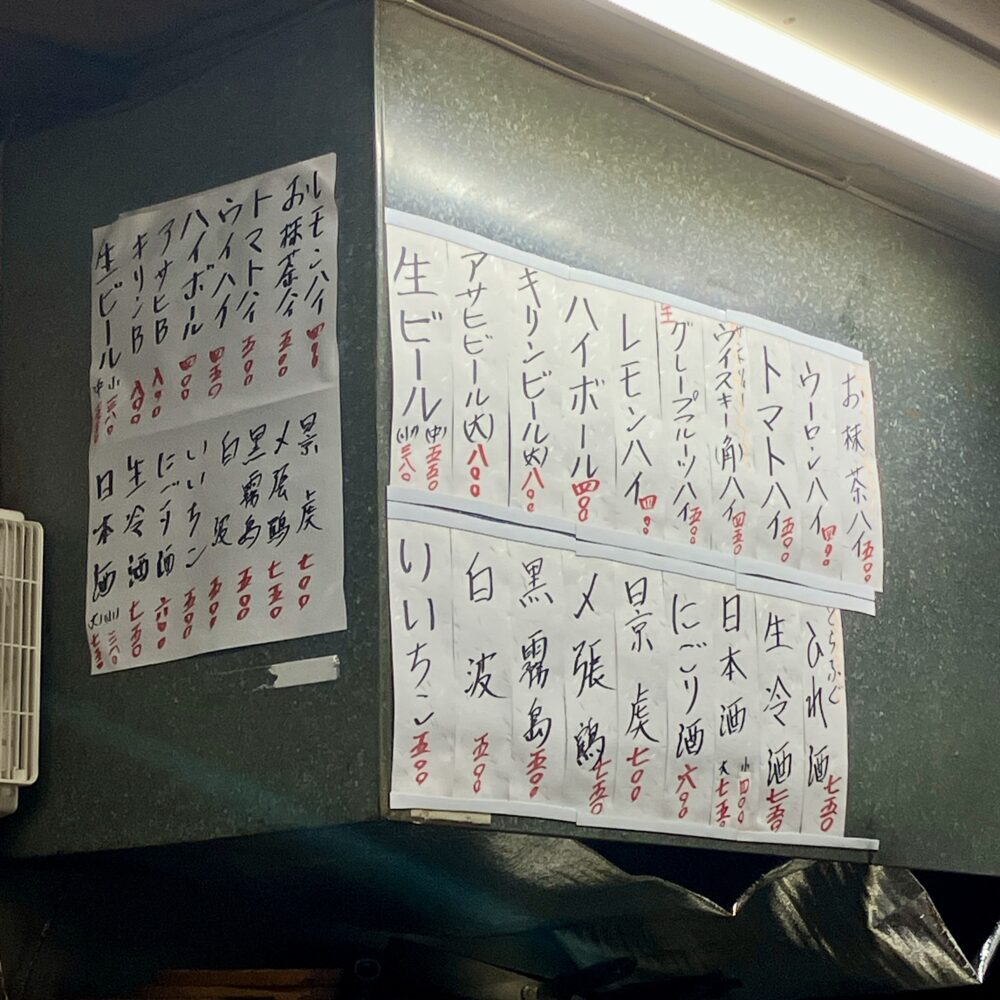 レモンハイ 四〇〇
お抹茶ハイ 五〇〇
トマトハイ 五〇〇
ウイハイ 四五〇
ハイボール 四〇〇
アサヒB 八〇〇
キリンB 八〇〇
生ビール 小 三八〇
景虎 七〇〇
〆張鶴 七五〇
黒霧島 五〇〇
白波 五〇〇
いいちこ 五〇〇
にごり酒 六〇〇
生冷酒 七五〇
日本酒 (小) 三八〇
大 七五〇
お抹茶ハイ 五〇〇
ウーロンハイ 四〇〇
トマトハイ 五〇〇
ウイスキー(角)ハイ 四五〇
生グレープフルーツハイ 五〇〇
レモンハイ 四〇〇
ハイボール 四〇〇
キリンビール(大) 八〇〇
アサヒビール(大) 八〇〇
生ビール (中) 五五〇
(小) 三八〇
とらふぐ
ひれ酒 七五〇
生冷酒 七五〇
日本酒 小 四〇〇
大 七五〇
にごり酒 六〇〇
景虎 七〇〇
〆張鶴 七五〇
黒霧島 五〇〇
白波 五〇〇
いいちこ 五〇〇